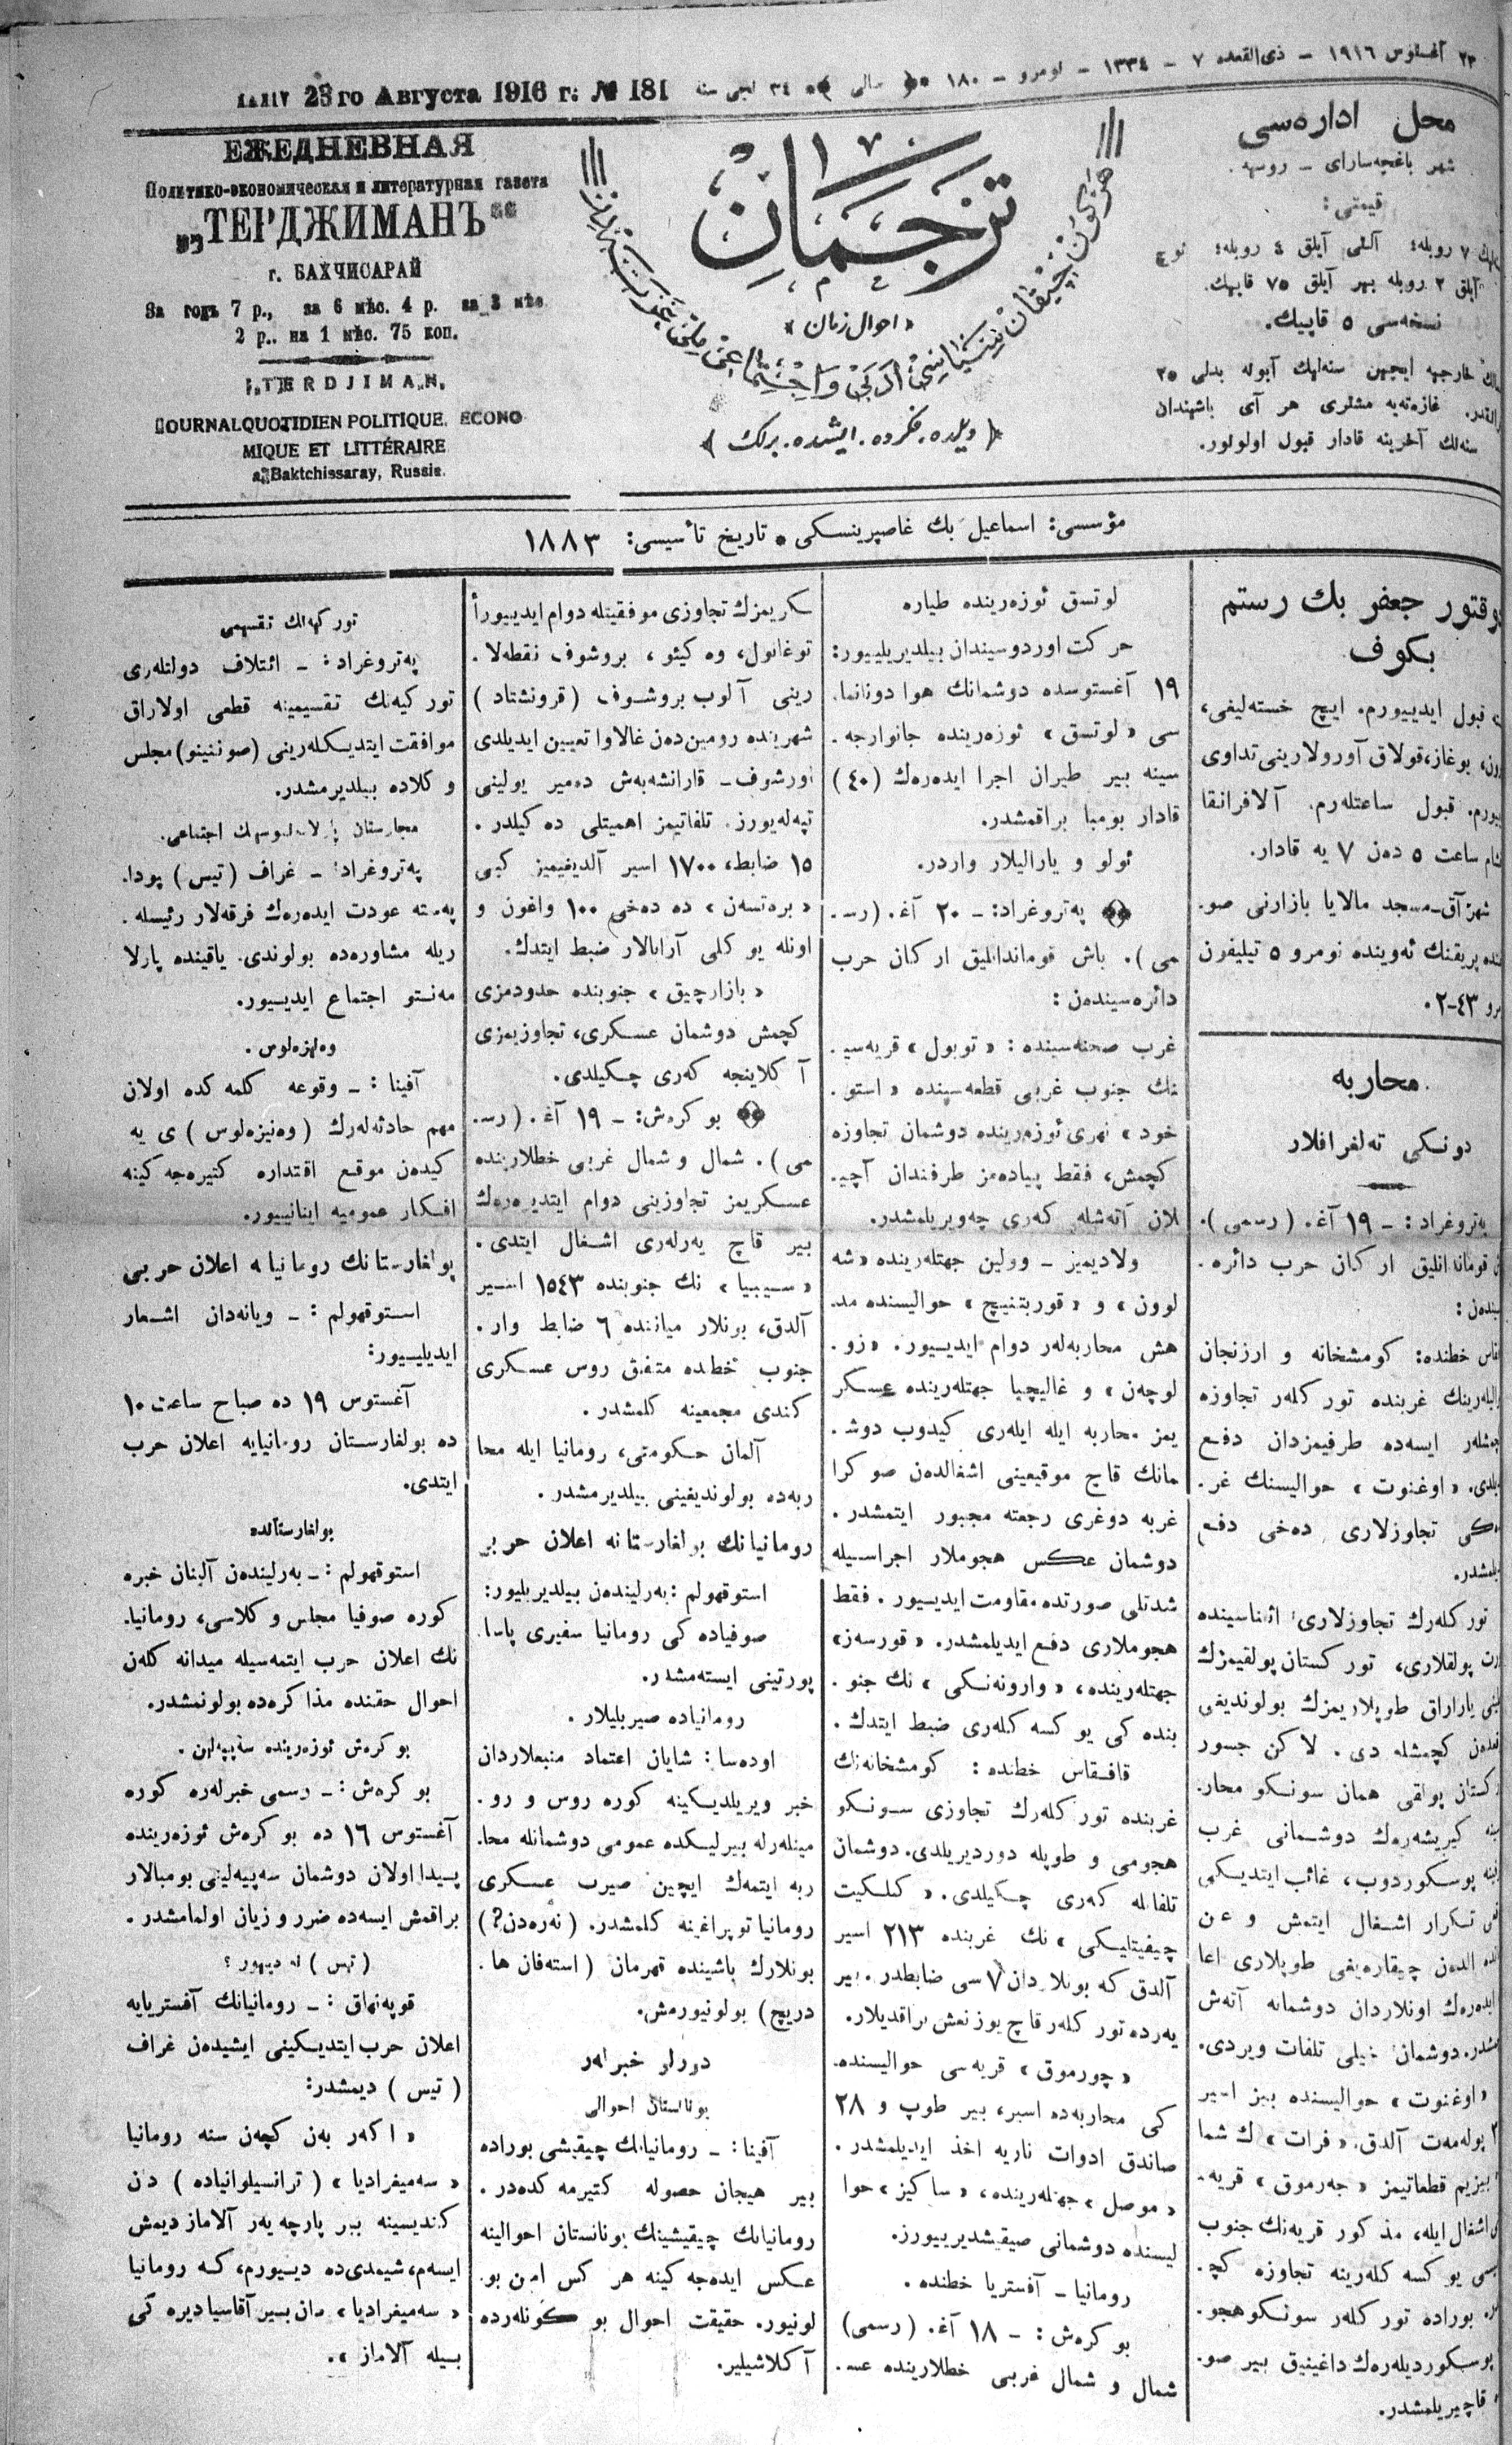 ٢٣ آغستوس ١٩١٦ – ذی‌القعده ٧ – ١٣٣٤ – نومرو – ١٨٠ (سالی) ٣٤ نجی سنه
23го Августа 1916 г. № 181
ЕЖЕДНЕВНАЯ
Политико-экономическая и литературная газета
„ТЕРДЖИМАНЪ“
г. БАХЧИСАРАЙ
За годъ 7 р., за 6 мѣс. 4 р. за 3 мѣс.
2 р.. на 1 мѣс. 75 коп.
„TERDJIMAN„
JOURNAL QUOTIDIEN POLITIQUE, ECONO
MIQUE ET LITTÉRAIRE
a Baktchissaray, Russie.
ترجمان
«احوال زمان»
﴿دیلده. فکرده. ایشده. برلك﴾
محل اداره‌سی
شهر باغچه‌سارای – روسیه.
قیمتی:
٧ روبله؛ آلتی آیلق ٤ روبله؛
آیلق ٢ روبله بیر آیلق ٧٥ قاپیك.
نسخه‌سی ٥ قاپیك.
خارجیه ایچین سنه‌لیك آبونه بدلی
غازه‌ته‌یه مشتری هر آی باشیندان
سنه‌نك آخرینه قادار قبول اولونور.
مؤسسی: اسماعیل بك غاصپرینسکی • تاریخ تأسیسی: ١٨٨٣
دوقتور جعفر بك رستم
بکوف
قبول ایدییورم. ایچ خسته‌لیغی،
بوغاز، قولاق آورولارینی تداوی
قبول ساعتلەرم. آلافرانقا
ساعت ٥ دەن ٧ یە قادار.
شهر آق-مسجد مالایا بازارنی صو.
پریقنك ئەوینده نومرو ٥ تیلیفون
٤٣-٢٠
محاربه
دونکی تەلغرافلار
پەتروغراد: – ١٩ آغ. (رسمی).
قوماندانلیق ارکان حرب دائره.
سیندەن:
خطنده: کومشخانه و ارزنجان
غربنده تورکلەر تجاوزه
ایسەده طرفیمزدان دفع
«اوغنوت» حوالیسنك غر.
تجاوزلاری دەخی دفع
تورکلەرك تجاوزلاری اثناسینده
پولقلاری، تورکستان پولقیمزك
یاراراق طوپلاریمزك بولوندیغی
کچمشلە دی. لاکن جسور
پولقی همان سونکو محار.
کیریشەرەك دوشمانی غرب
پوسکوردوب، غائب ایتدیکی
تکرار اشغال ایتمش و
الدەن چیقارەیغی طوپلاری
ایدەرەك اونلاردان دوشمانه آتەش
دوشمان خیلی تلفات ویردی.
«اوغنوت» حوالیسنده بیز اسیر
پولەمەت آلدق. «فرات»ك شما
بیزیم قطعاتیمز «جەرموق» قریه.
اشغال ایله، مذکور قریەنك جنوب
یوکسەکلەرینه تجاوزه کچ.
بوراده تورکلەر سونکو هجو.
پوسکوردیلەرەك داغینیق بیر صو.
قاچیریلمشدر.
لوتسق ئوزەرینده طیاره
حرکت اوردوسیندان بیلدیریلییور:
١٩ آغستوسده دوشمانك هوا دونانما.
سی «لوتسق» ئوزەرینده جانوارجه.
سینه بیر طیران اجرا ایدەرەك (٤٠)
قادار بومبا براقمشدر.
ئولو و یارالیلار واردر.
پەتروغراد: – ٢٠ آغ. (رس.
می). باش قوماندانلیق ارکان حرب
دائره‌سیندەن:
غرب صحنەسینده: «توبول» قریەسی.
نك جنوب غربی قطعەسینده «استو.
خود» نهری ئوزەرینده دوشمان تجاوزه
کچمش، فقط پیادەمز طرفندان آچی.
لان آتەشله کەری چەویریلمشدر.
ولادیمیر – وولین جهتلەرینده «شه
لوون» و «قوربتنیچ» حوالیسنده مد.
هش محاربەلەر دوام ایدیییور. «زو.
لوچەن» و غالیچیا جهتلەرینده عسکر
یمز محاربه ایله ایلەری کیدوب دوش.
مانك قاچ موقیعینی اشغالدەن صوکرا
غربه دوغری رجعته مجبور ایتمشدر.
دوشمان عکس هجوملار اجراسیله
شدتلی صورتده مقاومت ایدییور. فقط
هجوملاری دفع ایدیلمشدر. «قورسەز»
جهتلەرینده، «وارونەنکی» نك جنو.
بنده کی یوکسەکلەری ضبط ایتدك.
قافقاس خطنده: کومشخانەنك
غربنده تورکلەرك تجاوزی سونکو
هجومی و طوپله دوردیریلدی. دوشمان
تلفاله کەری چکیلدی. «کلکیت
چیفیتلیکی» نك غربنده ٢١٣ اسیر
آلدق که بونلاردان ٧ سی ضابطدر. بیر
یەرده تورکلەر قاچ یوز نعش براقدیلار.
«چورموق» قریەسی حوالیسنده
کی محاربەده اسیر، بیر طوپ و ٢٨
صاندق ادوات ناریه اخذ ایدیلمشدر.
«موصل» جهتلەرینده، «ساکیز» حوا
لیسنده دوشمانی صیقیشدیرییورز.
رومانیا – آفستریا خطنده.
بوکرەش: – ١٨ آغ. (رسمی)
شمال و شمال غربی خطلارینده عس.
کریمزك تجاوزی موفقیتله دوام ایدییور
توغانول، وە کیئو، بروشوف نقطەلا.
رینی آلوب بروشوف (قرونشتاد)
شهرینده رومین‌دەن غالاوا تعیین ایدیلدی
اورشوف – قارانشەبەش دەمیر یولینی
تپەلەیورز. تلفاتیمز اهمیتلی دەکیلدر.
١٥ ضابط، ١٧٠٠ اسیر آلدیغیمیز کبی
«برەتسەن» دە دەخی ١٠٠ واغون و
اونله یوکلی آرابالار ضبط ایتدك.
«بازارچیق» جنوبنده حدودمزی
کچمش دوشمان عسکری، تجاوزیمزی
آکلاینجه کەری چکیلدی.
بوکرەش: – ١٩ آغ. (رس.
می). شمال و شمال غربی خطلارینده
عسکریمز تجاوزینی دوام ایتدیرەرەك
بیر قاچ یەرلەری اشغال ایتدی.
«سیبیا» نك جنوبنده ١٥٤٣ اسیر
آلدق، بونلار میاننده ٦ ضابط وار.
جنوب خطده متفق روس عسکری
کندی مجمعینه کلمشدر.
آلمان حکومتی، رومانیا ایله محا
ربەده بولوندیغینی بیلدیرمشدر.
رومانیانك بولغارستانه اعلان حربی
استوقهولم: بەرلیندەن بیلدیریلیور:
صوفیاده کی رومانیا سفیری پاسا.
پورتینی ایستەمشدر.
رومانیاده صیربلیلار.
اودەسا: شایان اعتماد منبعلاردان
خبر ویریلدیکینه کوره روس و رو.
مینلەرله بیرلیکده عمومی دوشمانله محا.
ربه ایتمەك ایچین صیرب عسکری
رومانیا توپراغینه کلمشدر. (نەرەدن؟)
بونلارك باشینده قهرمان (استەفان ها.
دریچ) بولونیورمش.
دورلو خبرلەر
یونانستان احوالی
آفینا: – رومانیانك چیقیشی بوراده
بیر هیجان حصوله کتیرمەکدەدر.
رومانیانك چیقیشینك یونانستان احوالینه
عکس ایدەجەکینه هر کس امین بو.
لونیور. حقیقت احوال بو کونلەرده
آکلاشیلیر.
تورکیەنك تقسیمی
پەتروغراد: – ائتلاف دولتلەری
تورکیەنك تقسیمینه قطعی اولاراق
موافقت ایتدیکلەرینی (صوننینو) مجلس
وکلاده بیلدیرمشدر.
مجارستان پارلامنتوسینك اجتماعی.
پەتروغراد: – غراف (تیس) پودا.
پەشته عودت ایدەرەك فرقەلار رئیسلە.
ریله مشاورەده بولوندی. یاقینده پارلا
مەنتو اجتماع ایدییور.
وەنیزەلوس.
آفینا: – وقوعه کلمەکده اولان
مهم حادثەلەرك (وەنیزەلوس) ی یه
کیدەن موقع اقتداره کتیرەجەکینه
افکار عمومیه اینانییور.
بولغارستانك رومانیایه اعلان حربی
استوقهولم: – ویانەدان اشعار
ایدیلییور:
آغستوس ١٩ ده صباح ساعت ١٠
ده بولغارستان رومانیایه اعلان حرب
ایتدی.
بولغارستاندە
استوقهولم: – بەرلیندەن آلینان خبره
کوره صوفیا مجلس وکلاسی، رومانیا.
نك اعلان حرب ایتمەسیله میدانه کلەن
احوال حقنده مذاکرەده بولونمشدر.
بوکرەش ئوزەرینده سەپپەلین.
بوکرەش: – رسمی خبرلەره کوره
آغستوس ١٦ ده بوکرەش ئوزەرینده
پیدا اولان دوشمان سەپپەلینی بومبالار
براقمش ایسەده ضرر و زیان اولمامشدر.
(تیس) نه دییور؟
قوپەنهاق: – رومانیانك آفستریایه
اعلان حرب ایتدیکینی ایشیدەن غراف
(تیس) دیمشدر:
«اکەر بەن کچەن سنه رومانیا
«سەمیغرادیا» (ترانسیلوانیاده) دن
کندیسینه بیر پارچه یەر آلاماز دیمش
ایسەم، شیمدی‌ده دییورم، که رومانیا
«سەمیغرادیا» دان بیر آقاسیا دیرەکی
بیله آلاماز».